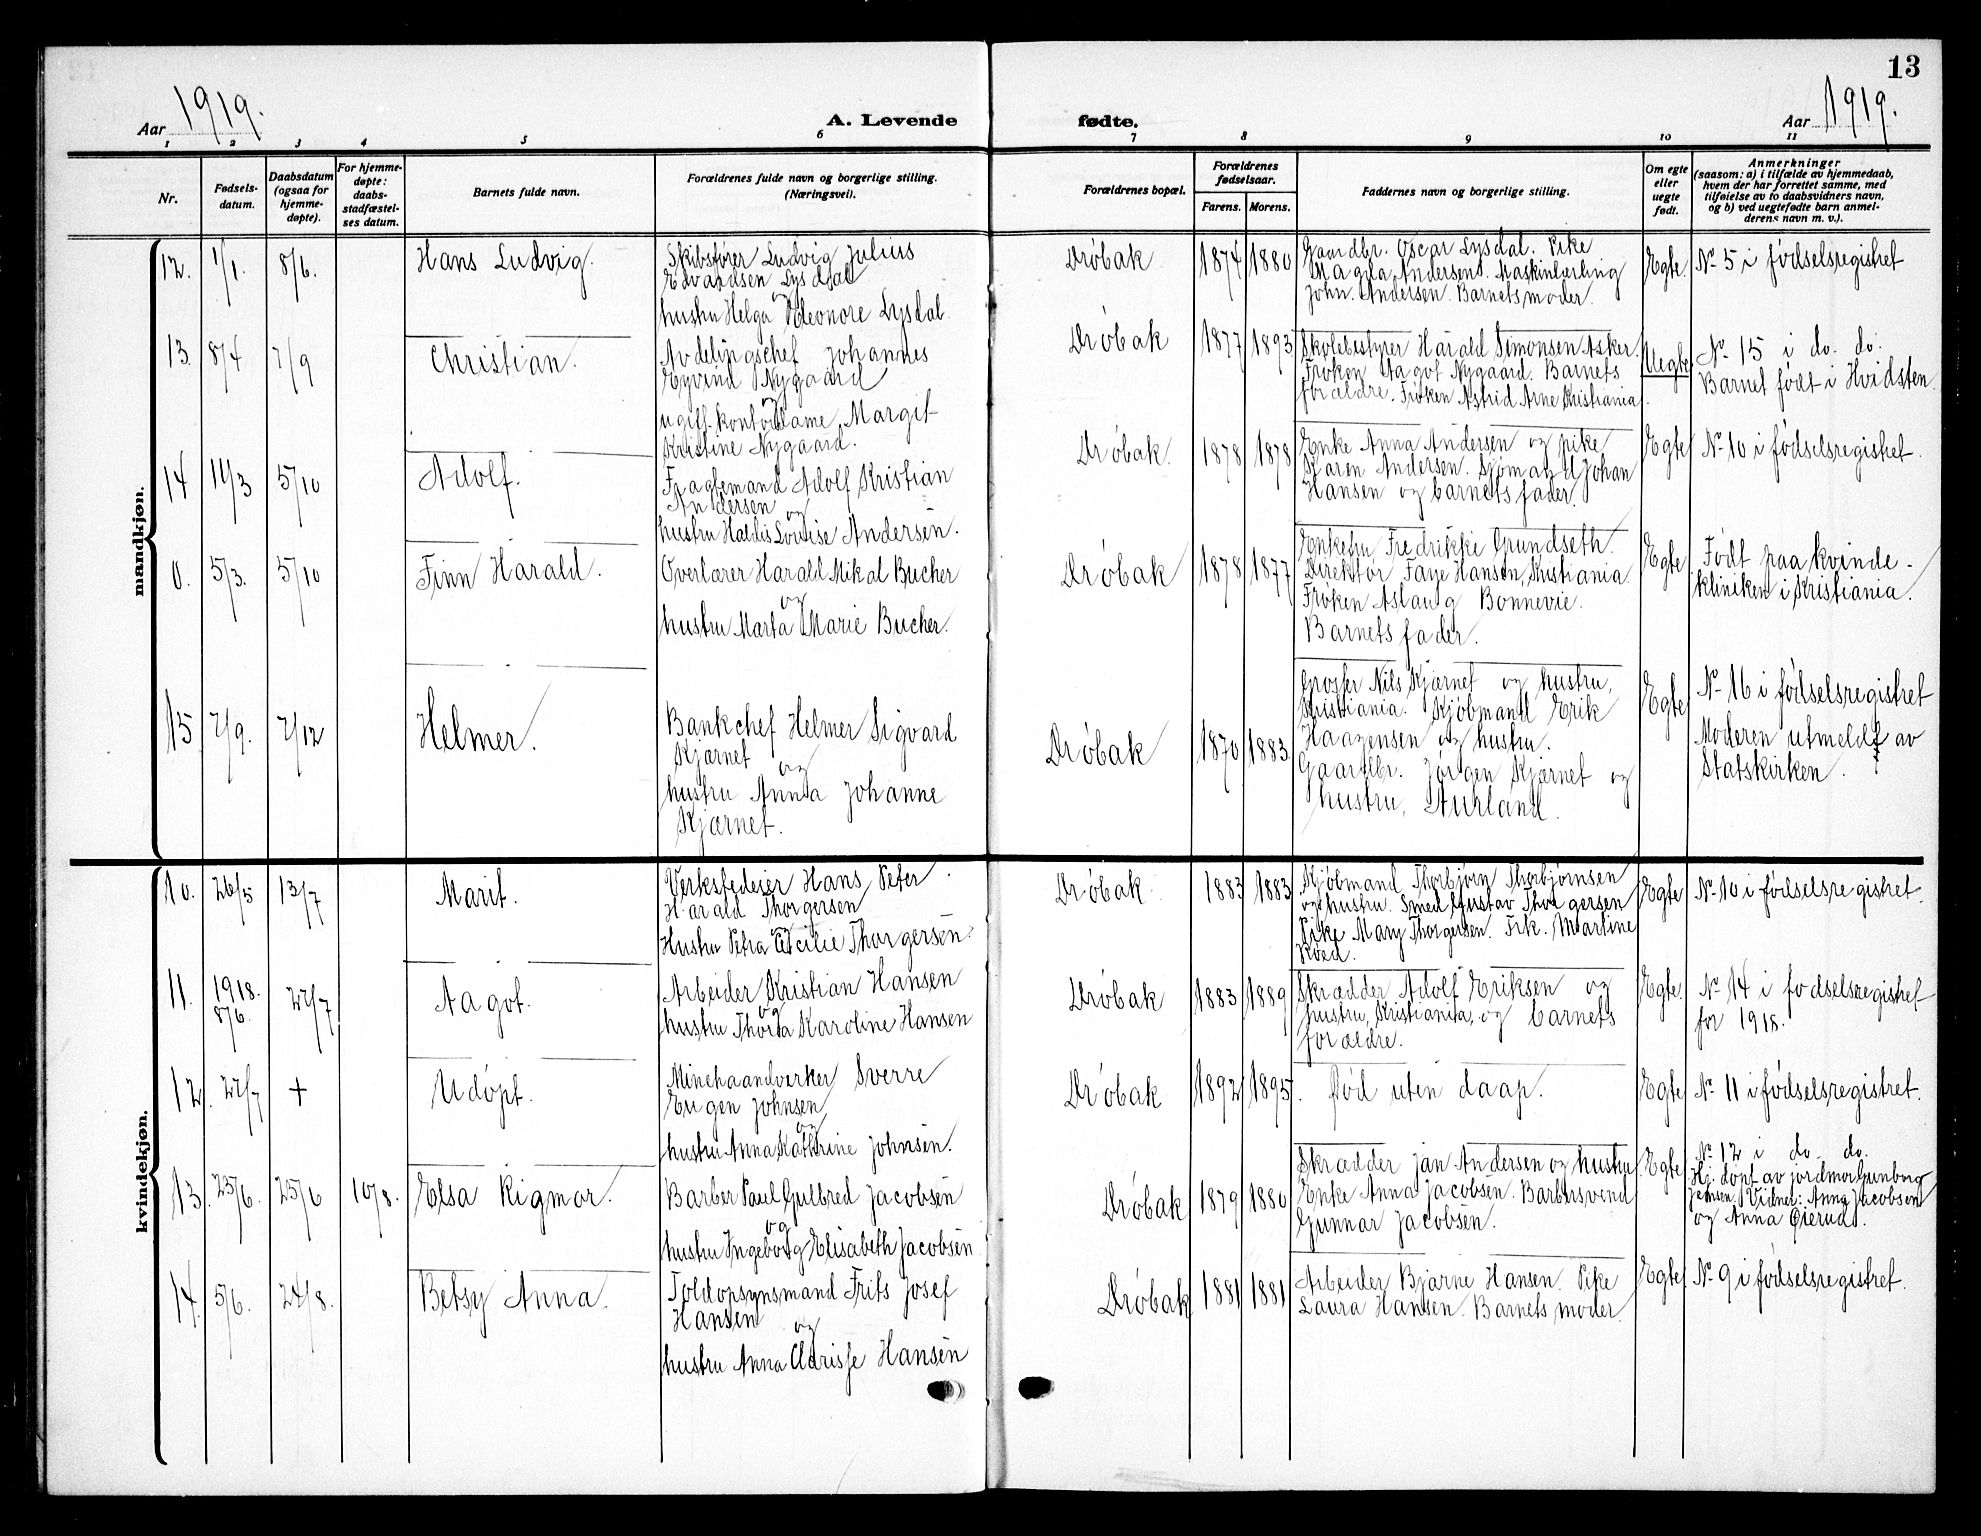 13
Aar 1919.
A. Levende fødte.
Aar 1919.
1 2 3 4 5 6 7 8 9 10 11
Nr.
Fødsels-
datum.
Daabsdatum
(ogsaa for
hjemme-
døpte).
For hjemme-
døpte:
daabs-
stadfæstel-
ses datum.
Barnets fulde navn.
Forældrenes fulde navn og borgerlige stilling.
(Næringsvei).
Forældrenes bopæl.
Forældrenes
fødselsaar.
Farens. Morens.
Faddernes navn og borgerlige stilling.
Om egte
eller
uegte
født.
Anmerkninger
(saasom: a) i tilfælde av hjemmedaab,
hvem der har forrettet samme, med
tilføielse av to daabsvidners navn,
og b) ved uegtefødte barn anmel-
derens navn m. v.).
mandkjøn.
12. 1/1. 8/6. Hans Ludvig.
Skibsfører Ludvig Julius
Edvardsen Lysdal
og
hustru Helga Eleonore Lysdal.
Drøbak 1874 1880
Gaardbr. Oscar Lysdal. Pike
Magda Andersen. Maskinlærling
John. Andersen. Barnets moder.
Egte.
No 5 i fødselsregistret
13. 8/4 7/9 Christian.
Avdelingschef Johannes
Eyvind Nygaard
og
ugift kontordame Margit
Kristine Nygaard.
Drøbak 1877 1893
Skolebestyrer Harald Simonsen Asker.
Frøken Aagot Nygaard. Barnets
forældre. Frøken Astrid Arne Kristiania
Uegte.
No 15 i do. do.
Barnet født i Hvidsten.
14 11/3 5/10 Adolf.
Fragtemand Adolf Kristian
Andersen
og
hustru Haldis Louise Andersen.
Drøbak. 1878 1878
Enke Anna Andersen og pike
Karen Andersen. Sjømand Johan
Hansen og barnets fader.
Egte
No 10 i fødselsregistret.
0. 5/3. 5/10 Finn Harald.
Overlærer Harald Mikal Bucher
og
hustru Marta Marie Bucher.
Drøbak 1878 1877
Enkefru Fredrikke Grundseth.
Direktør Faye Hansen, Kristiania
Frøken Aslaug Bonnevie.
Barnets fader.
Egte
Født paa kvinde-
kliniken i Kristiania.
15 7/9. 7/12 Helmer.
Bankchef Helmer Sigvard
Kjærnet
og
hustru Anna Johanne
Kjærnet.
Drøbak 1870 1883.
Grosser Nils Kjærnet og hustru,
Kristiania. Kjøbmand Erik
Haagensen og hustru.
Gaardbr. Jørgen Kjærnet og
hustru, Aurland.
Egte
No 16 i fødselsregistret
Moderen utmeldt av
Statskirken.
kvindekjøn.
10. 26/5 13/7 Marit.
Verkstedeier Hans Peter
Harald Thorgersen
og
Hustru Petra Cecilie Thorgersen.
Drøbak 1883 1883
Kjøbmand Thorbjørn Thorbjørnsen
og hustru. Smed Gustav Thorgersen
Pike Mary Thorgersen. Frk. Martine
Koed.
Egte
No 10 i fødselsregistret.
11. 1918.
8/6. 27/7 Aagot.
Arbeider Kristian Hansen
og
hustru Thora Karoline Hansen
Drøbak 1883 1889
Skrædder Adolf Eriksen og
hustru, Kristiania, og barnets
forældre.
Egte.
No 14 i fødselsregistret
for 1918.
12. 27/7 + Udøpt.
Minehaandverker Sverre
Eugen Johnsen
og
hustru Anna Kathrine Johnsen.
Drøbak 1892 1895.
Død uten daap.
Egte
No 11 i fødselsregistret.
13. 25/6. 25/6 10/8. Elsa Rigmor.
Barber Paul Gulbred Jacobsen
og
hustru Ingeborg Elisabeth Jacobsen
Drøbak 1879 1880
Skrædder Jan Andersen og hustru
Enke Anna Jacobsen. Barbersvend
Gunnar Jacobsen.
Egte
No 12 i do. do.
Hj. døpt av jordmor Gunborg
Jensen. Vidner: Anna Jacobsen
og Anna Øierud.
14. 5/6. 24/8. Betsy Anna.
Toldopsynsmand Frits Josef
Hansen
og
hustru Anna Clarisse Hansen
Drøbak 1881 1881
Arbeider Bjarne Hansen. Pike
Laura Hansen. Barnets moder.
Egte
No 9 i fødselsregistret.